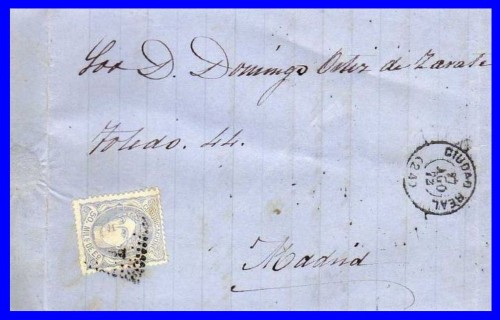 Sor D. Domingo Ortiz de Zarate
Toledo. 44.
Madrid
CIUDAD REAL
27
AGO
72
(24)